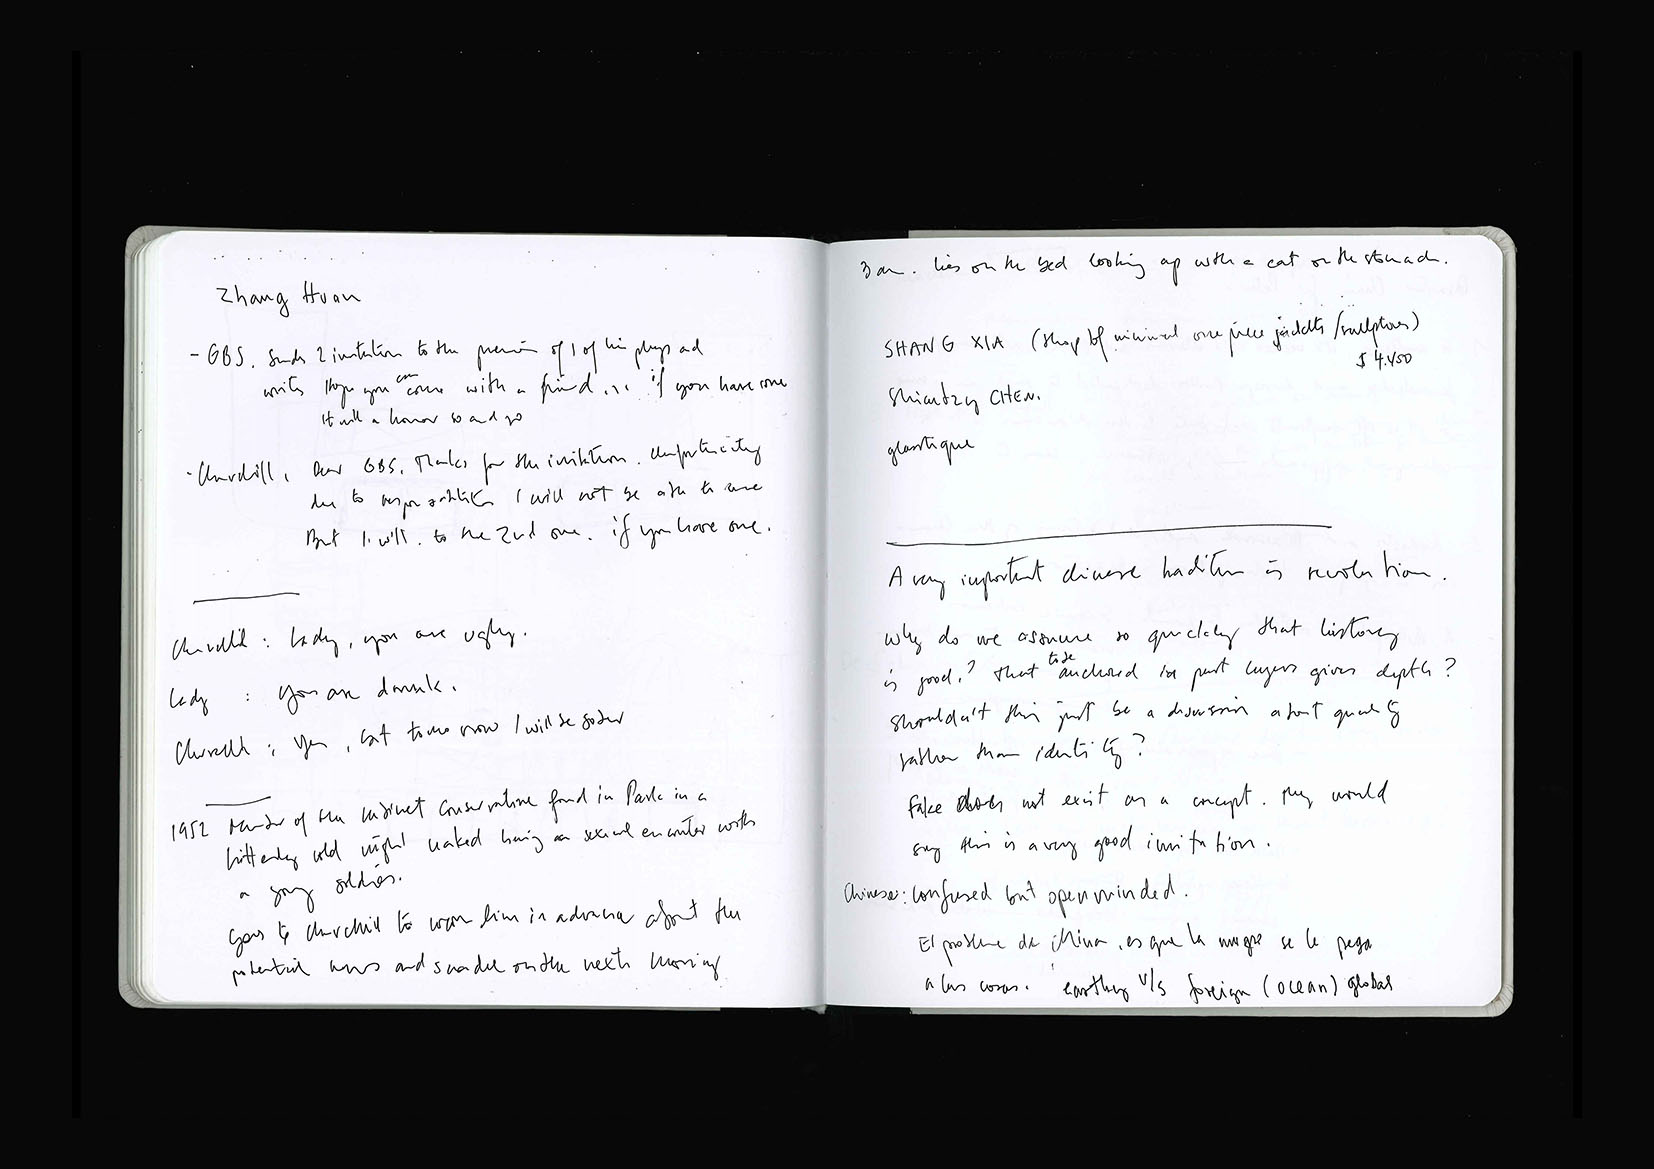 Zhang Huan
- GBS. Sends 2 invitation to the premier of 1 of his plays and
writes Hope you can come with a friend... if you have one
It will a honor so and so
- Churchill, Dear GBS, Thanks for the invitation. Unfortunately
due to responsibilities I will not be able to come
But I will. to the 2nd one. if you have one.
Churchill : Lady, you are ugly.
Lady : You are drunk.
Churchill : Yes, but tomorrow I will be sober
1952 Member of the cabinet conservative found in Park in a
bitterly cold night naked having a sexual encounter with
a young soldier.
Goes to Churchill to warn him in advance about the
potential news and scandal on the next morning
3 am. lies on the bed looking up with a cat on the stomach.
SHANG XIA (shop of minimal one piece jackets / sculptures)
$ 4.450
Shiatzy CHEN.
A very important chinese tradition is revolution.
Why do we assume so quickly that history
is good? That to be anchored in past layers gives depth?
Shouldn't this just be a discussion about quality
rather than identity?
Fake does not exist as a concept. They would
say this is a very good imitation.
Chinese: confused but openminded.
El problema de China, es que la mugre se le pega
a las cosas. earthy v/s foreign (ocean) global